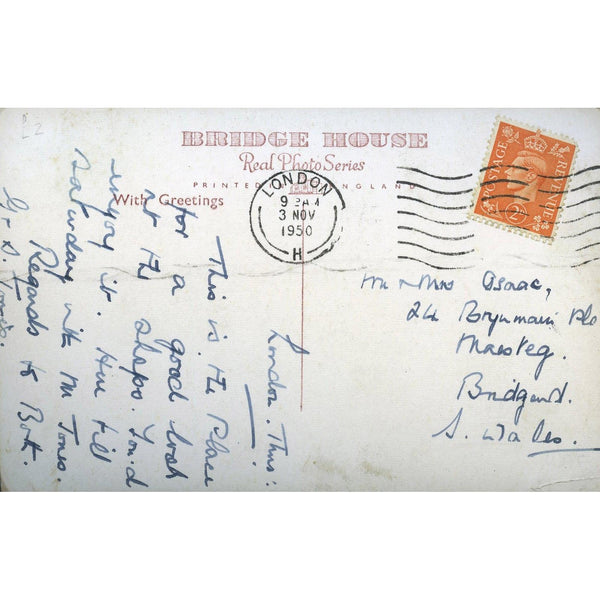 £2
BRIDGE HOUSE
Real Photo Series
PRINTED ENGLAND
With Greetings
LONDON
9
3 NOV
1950
H
POSTAGE
REVENUE
2
London. Thus:
This is the Place
for a good look
at the shops. You'd
enjoy it. Here till
Saturday with Mr Jones.
Regards to Both.
Mr & Mrs Isaac,
24 Brynmawr Plc
Maesteg.
Bridgend.
S. Wales.